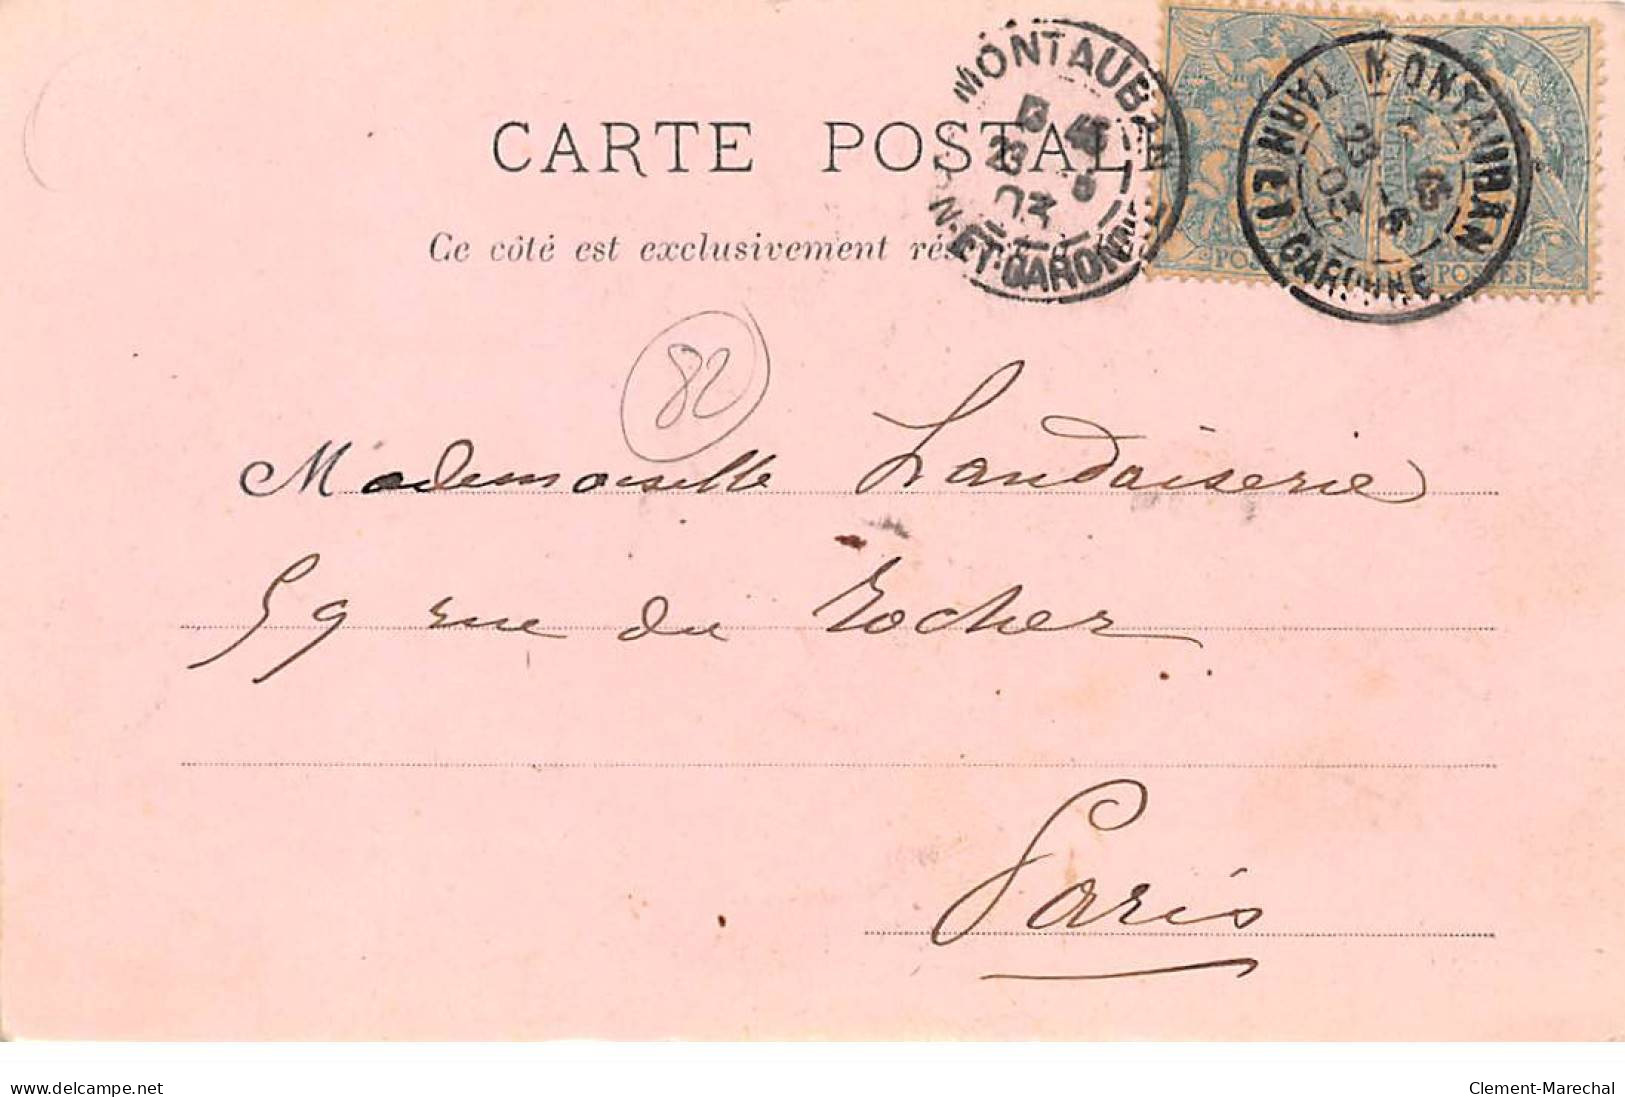 CARTE POSTALE
MONTAUBAN
23
03
N-ET-GARONNE
MONTAUBAN
23
03
TARN ET GARONNE
POSTES
Ce côté est exclusivement
82
Mademoiselle Landaiserie
59 rue du Rocher
Paris
www.delcampe.net
Clement-Marechal